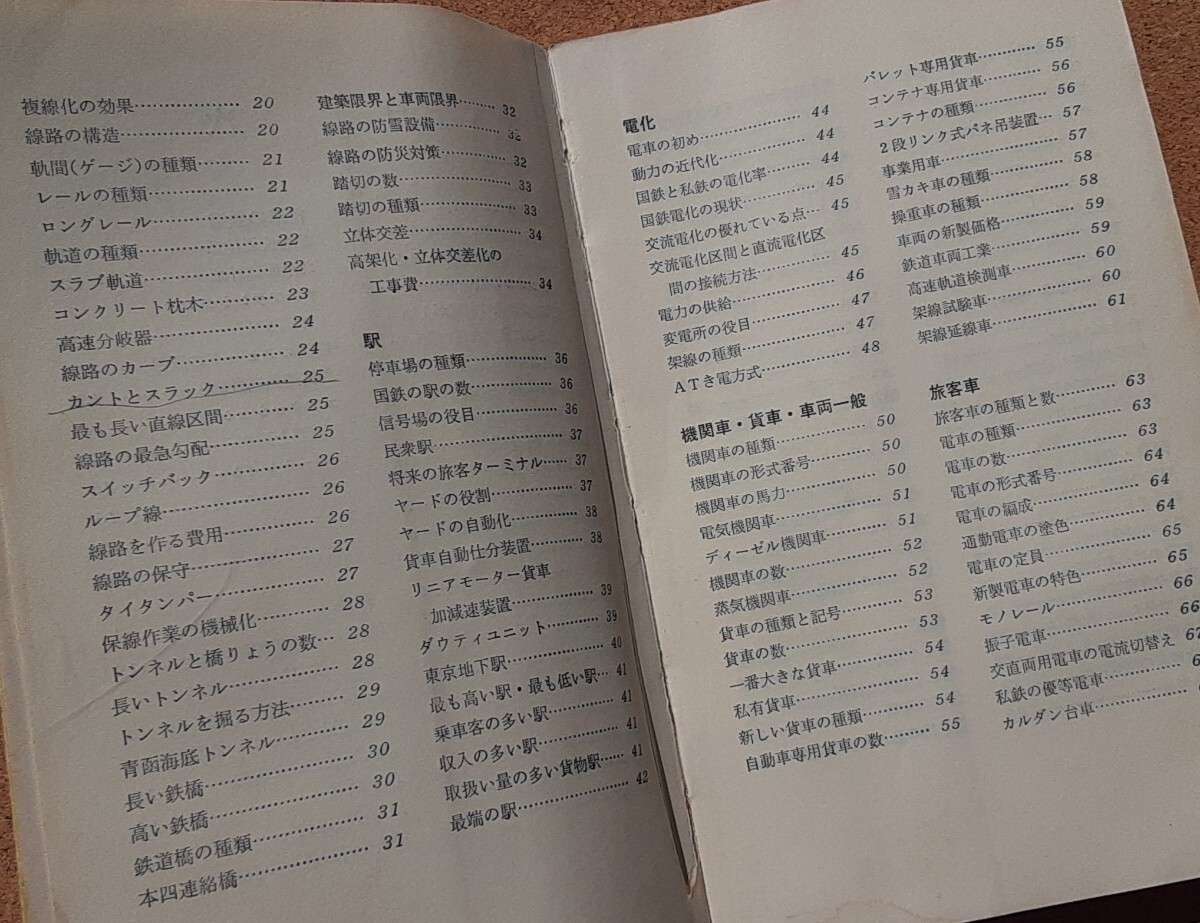 複線化の効果……………… 20
線路の構造………………… 20
軌間(ゲージ)の種類……… 21
レールの種類……………… 21
ロングレール……………… 22
軌道の種類………………… 22
スラブ軌道………………… 22
コンクリート枕木………… 23
高速分岐器………………… 24
線路のカーブ……………… 24
カントとスラック………… 25
最も長い直線区間………… 25
線路の最急勾配…………… 25
スイッチバック…………… 26
ループ線…………………… 26
線路を作る費用…………… 26
線路の保守………………… 27
タイタンパー……………… 27
保線作業の機械化………… 28
トンネルと橋りょうの数… 28
長いトンネル……………… 28
トンネルを掘る方法……… 29
青函海底トンネル………… 29
長い鉄橋…………………… 30
高い鉄橋…………………… 30
鉄道橋の種類……………… 31
本四連絡橋………………… 31
建築限界と車両限界……… 32
線路の防雪設備…………… 32
線路の防災対策…………… 32
踏切の数…………………… 33
踏切の種類………………… 33
立体交差…………………… 34
高架化・立体交差化の
工事費……………………… 34
駅
停車場の種類……………… 36
国鉄の駅の数……………… 36
信号場の役目……………… 36
民衆駅……………………… 37
将来の旅客ターミナル…… 37
ヤードの役割……………… 37
ヤードの自動化…………… 38
貨車自動仕分装置………… 38
リニアモーター貨車
加減速装置………………… 39
ダウティユニット………… 39
東京地下駅………………… 40
最も高い駅・最も低い駅… 41
乗車客の多い駅…………… 41
収入の多い駅……………… 41
取扱い量の多い貨物駅…… 41
最端の駅…………………… 42
電化
電車の初め………………… 44
動力の近代化……………… 44
国鉄と私鉄の電化率……… 44
国鉄電化の現状…………… 45
交流電化の優れている点… 45
交流電化区間と直流電化区
間の接続方法……………… 45
電力の供給………………… 46
変電所の役目……………… 47
架線の種類………………… 47
ATき電方式……………… 48
機関車・貨車・車両一般
機関車の種類……………… 50
機関車の形式番号………… 50
機関車の馬力……………… 50
電気機関車………………… 51
ディーゼル機関車………… 51
機関車の数………………… 52
蒸気機関車………………… 52
貨車の種類と記号………… 53
貨車の数…………………… 53
一番大きな貨車…………… 54
私有貨車…………………… 54
新しい貨車の種類………… 54
自動車専用貨車の数……… 55
パレット専用貨車………… 55
コンテナ専用貨車………… 56
コンテナの種類…………… 56
2段リンク式バネ吊装置… 57
事業用車…………………… 57
雪カキ車の種類…………… 58
操重車の種類……………… 58
車両の新製価格…………… 59
鉄道車両工業……………… 59
高速軌道検測車…………… 60
架線試験車………………… 60
架線延線車………………… 61
旅客車
旅客車の種類と数………… 63
電車の種類………………… 63
電車の数…………………… 63
電車の形式番号…………… 64
電車の編成………………… 64
通勤電車の塗色…………… 64
電車の定員………………… 65
新製電車の特色…………… 65
モノレール………………… 66
振子電車…………………… 66
交直両用電車の電流切替え 67
私鉄の優等電車……………
カルダン台車………………